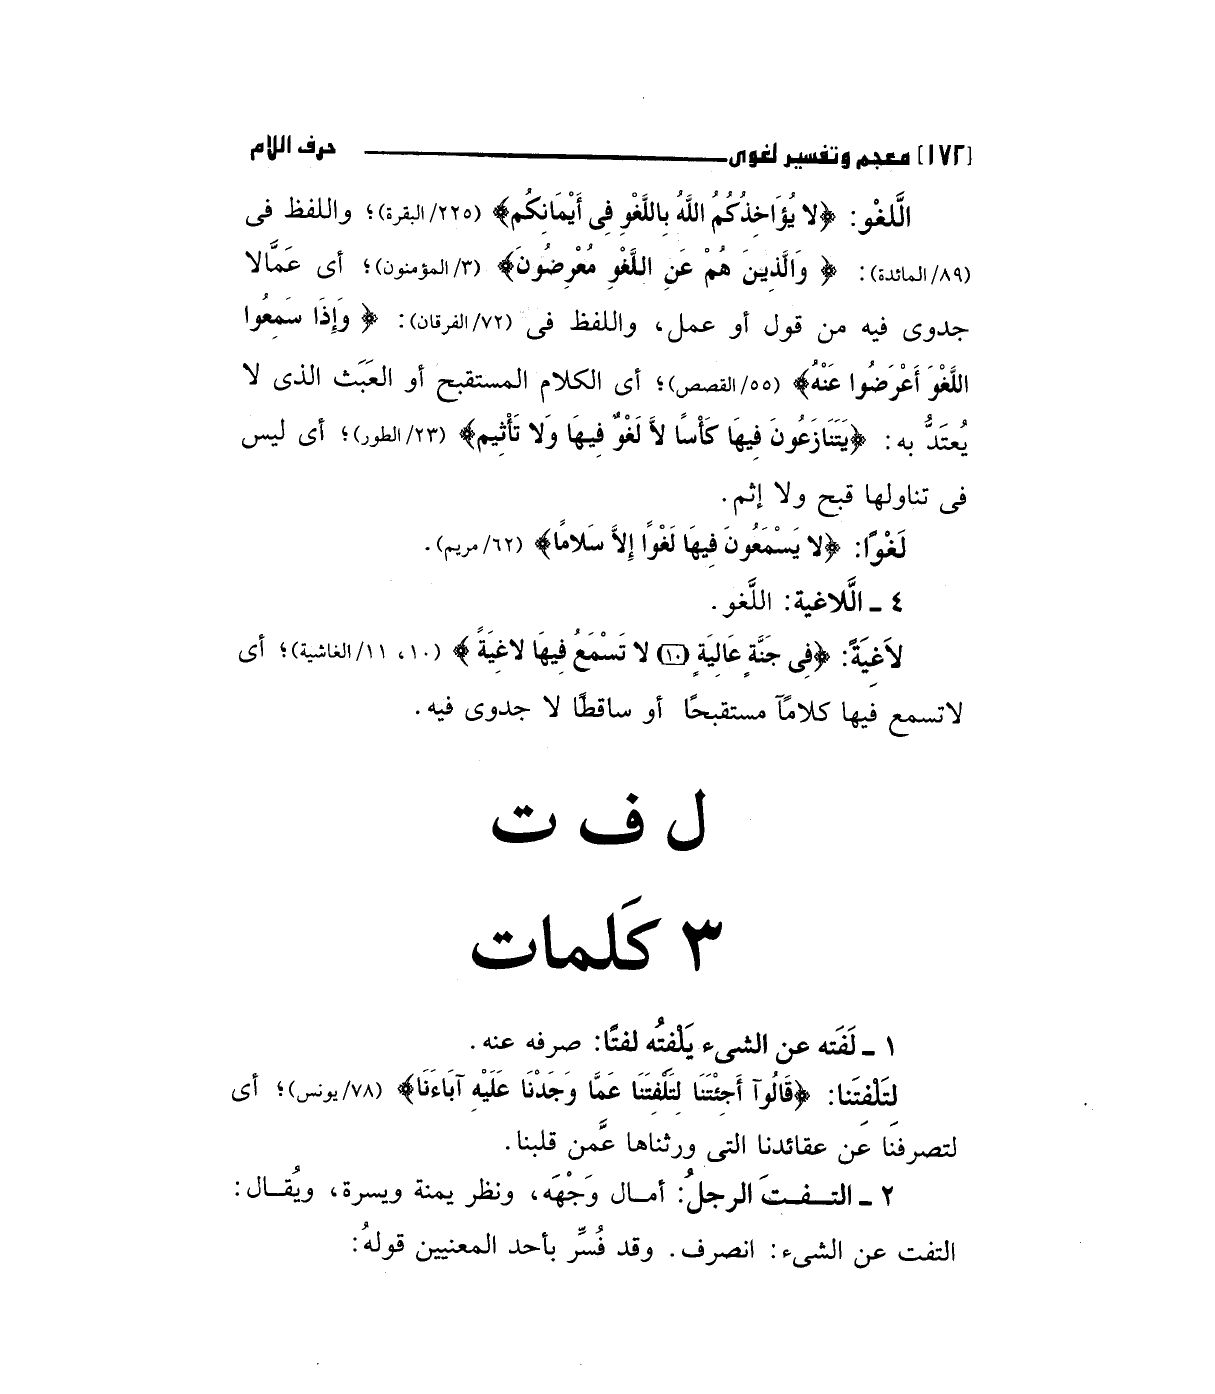 [١٧٢] معجم وتفسير لغوى حرف اللام
الَّلغْو: ﴿لا يُؤَاخِذُكُمُ اللَّهُ بِاللَّغْوِ فِى أَيْمَانِكُم﴾ (٢٢٥/ البقرة)؛ واللفظ فى
(٨٩/ المائدة): ﴿ وَالَّذِينَ هُمْ عَنِ اللَّغْوِ مُعْرِضُونَ﴾ (٣/ المؤمنون)؛ أى عَمَّالا
جدوى فيه من قول أو عمل، واللفظ فى (٧٢/ الفرقان): ﴿ وَإِذَا سَمِعُوا
اللَّغْوَ أَعْرَضُوا عَنْهُ﴾ (٥٥/ القصص)؛ أى الكلام المستقبح أو العَبَث الذى لا
يُعتَدُّ به: ﴿يَتَنَازَعُونَ فِيهَا كَأْسًا لاَّ لَغْوٌ فِيهَا وَلا تَأْثِيم﴾ (٢٣/ الطور)؛ أى ليس
فى تناولها قبح ولا إثم.
لَغْوًا: ﴿لا يَسْمَعُونَ فِيهَا لَغْوًا إِلاَّ سَلامًا﴾ (٦٢/ مريم).
٤ ـ الَّلاغية: اللَّغو.
لاَغِيَةً: ﴿فِى جَنَّةٍ عَالِيَةٍ (١٠) لا تَسْمَعُ فِيهَا لاغِيَةً ﴾ (١٠، ١١/ الغاشية)؛ أى
لاتسمع فيها كلاماً مستقبحًا أو ساقطًا لا جدوى فيه.
ل ف ت
٣ كَلمات
١ ـ لَفَته عن الشىء يَلْفتُه لفتًا: صرفه عنه.
لِتَلْفِتَنا: ﴿قَالُوآ أَجِئْتَنَا لِتَلْفِتَنَا عَمَّا وَجَدْنَا عَلَيْهِ آبَاءَنَا﴾ (٧٨/ يونس)؛ أى
لتصرفنا عن عقائدنا التى ورثناها عمَّن قلبنا.
٢ ـ التـفـتَ الرجلُ: أمـال وَجْهَه، ونظر يمنة ويسرة، ويُقـال:
التفت عن الشىء: انصرف. وقد فُسِّر بأحد المعنيين قولهُ: